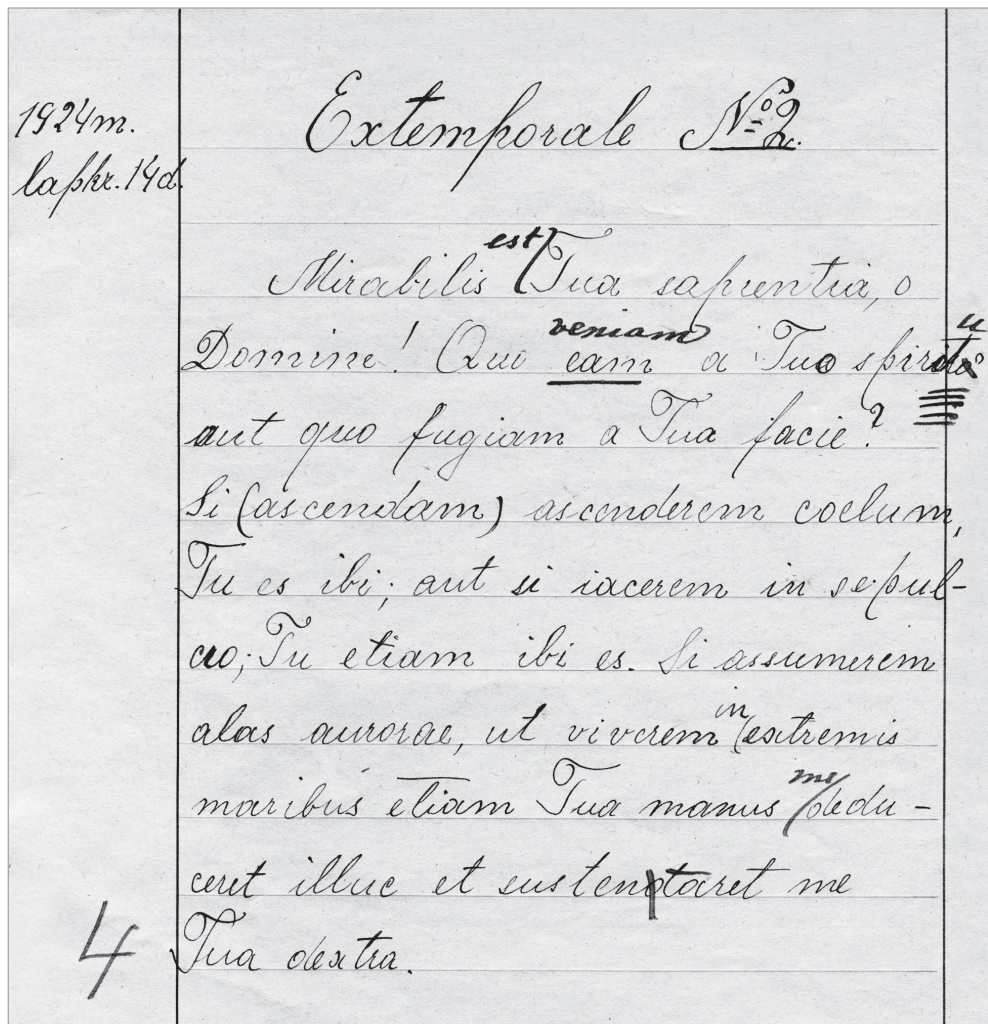 1924 m.
lapkr. 14 d.
Extemporale № 2.
est
Mirabilis Tua sapientia, o
veniam
u
Domine! Quo eam a Tuo spirito
aut quo fugiam a Tua facie?
Si (ascendam) ascenderem coelum,
Tu es ibi; aut si iacerem in sepul-
cro; Tu etiam ibi es. Si assumerem
in
alas aurorae, ut viverem extremis
me
maribus etiam Tua manus dedu-
ceret illuc et sustentaret me
4
Tua dextra.